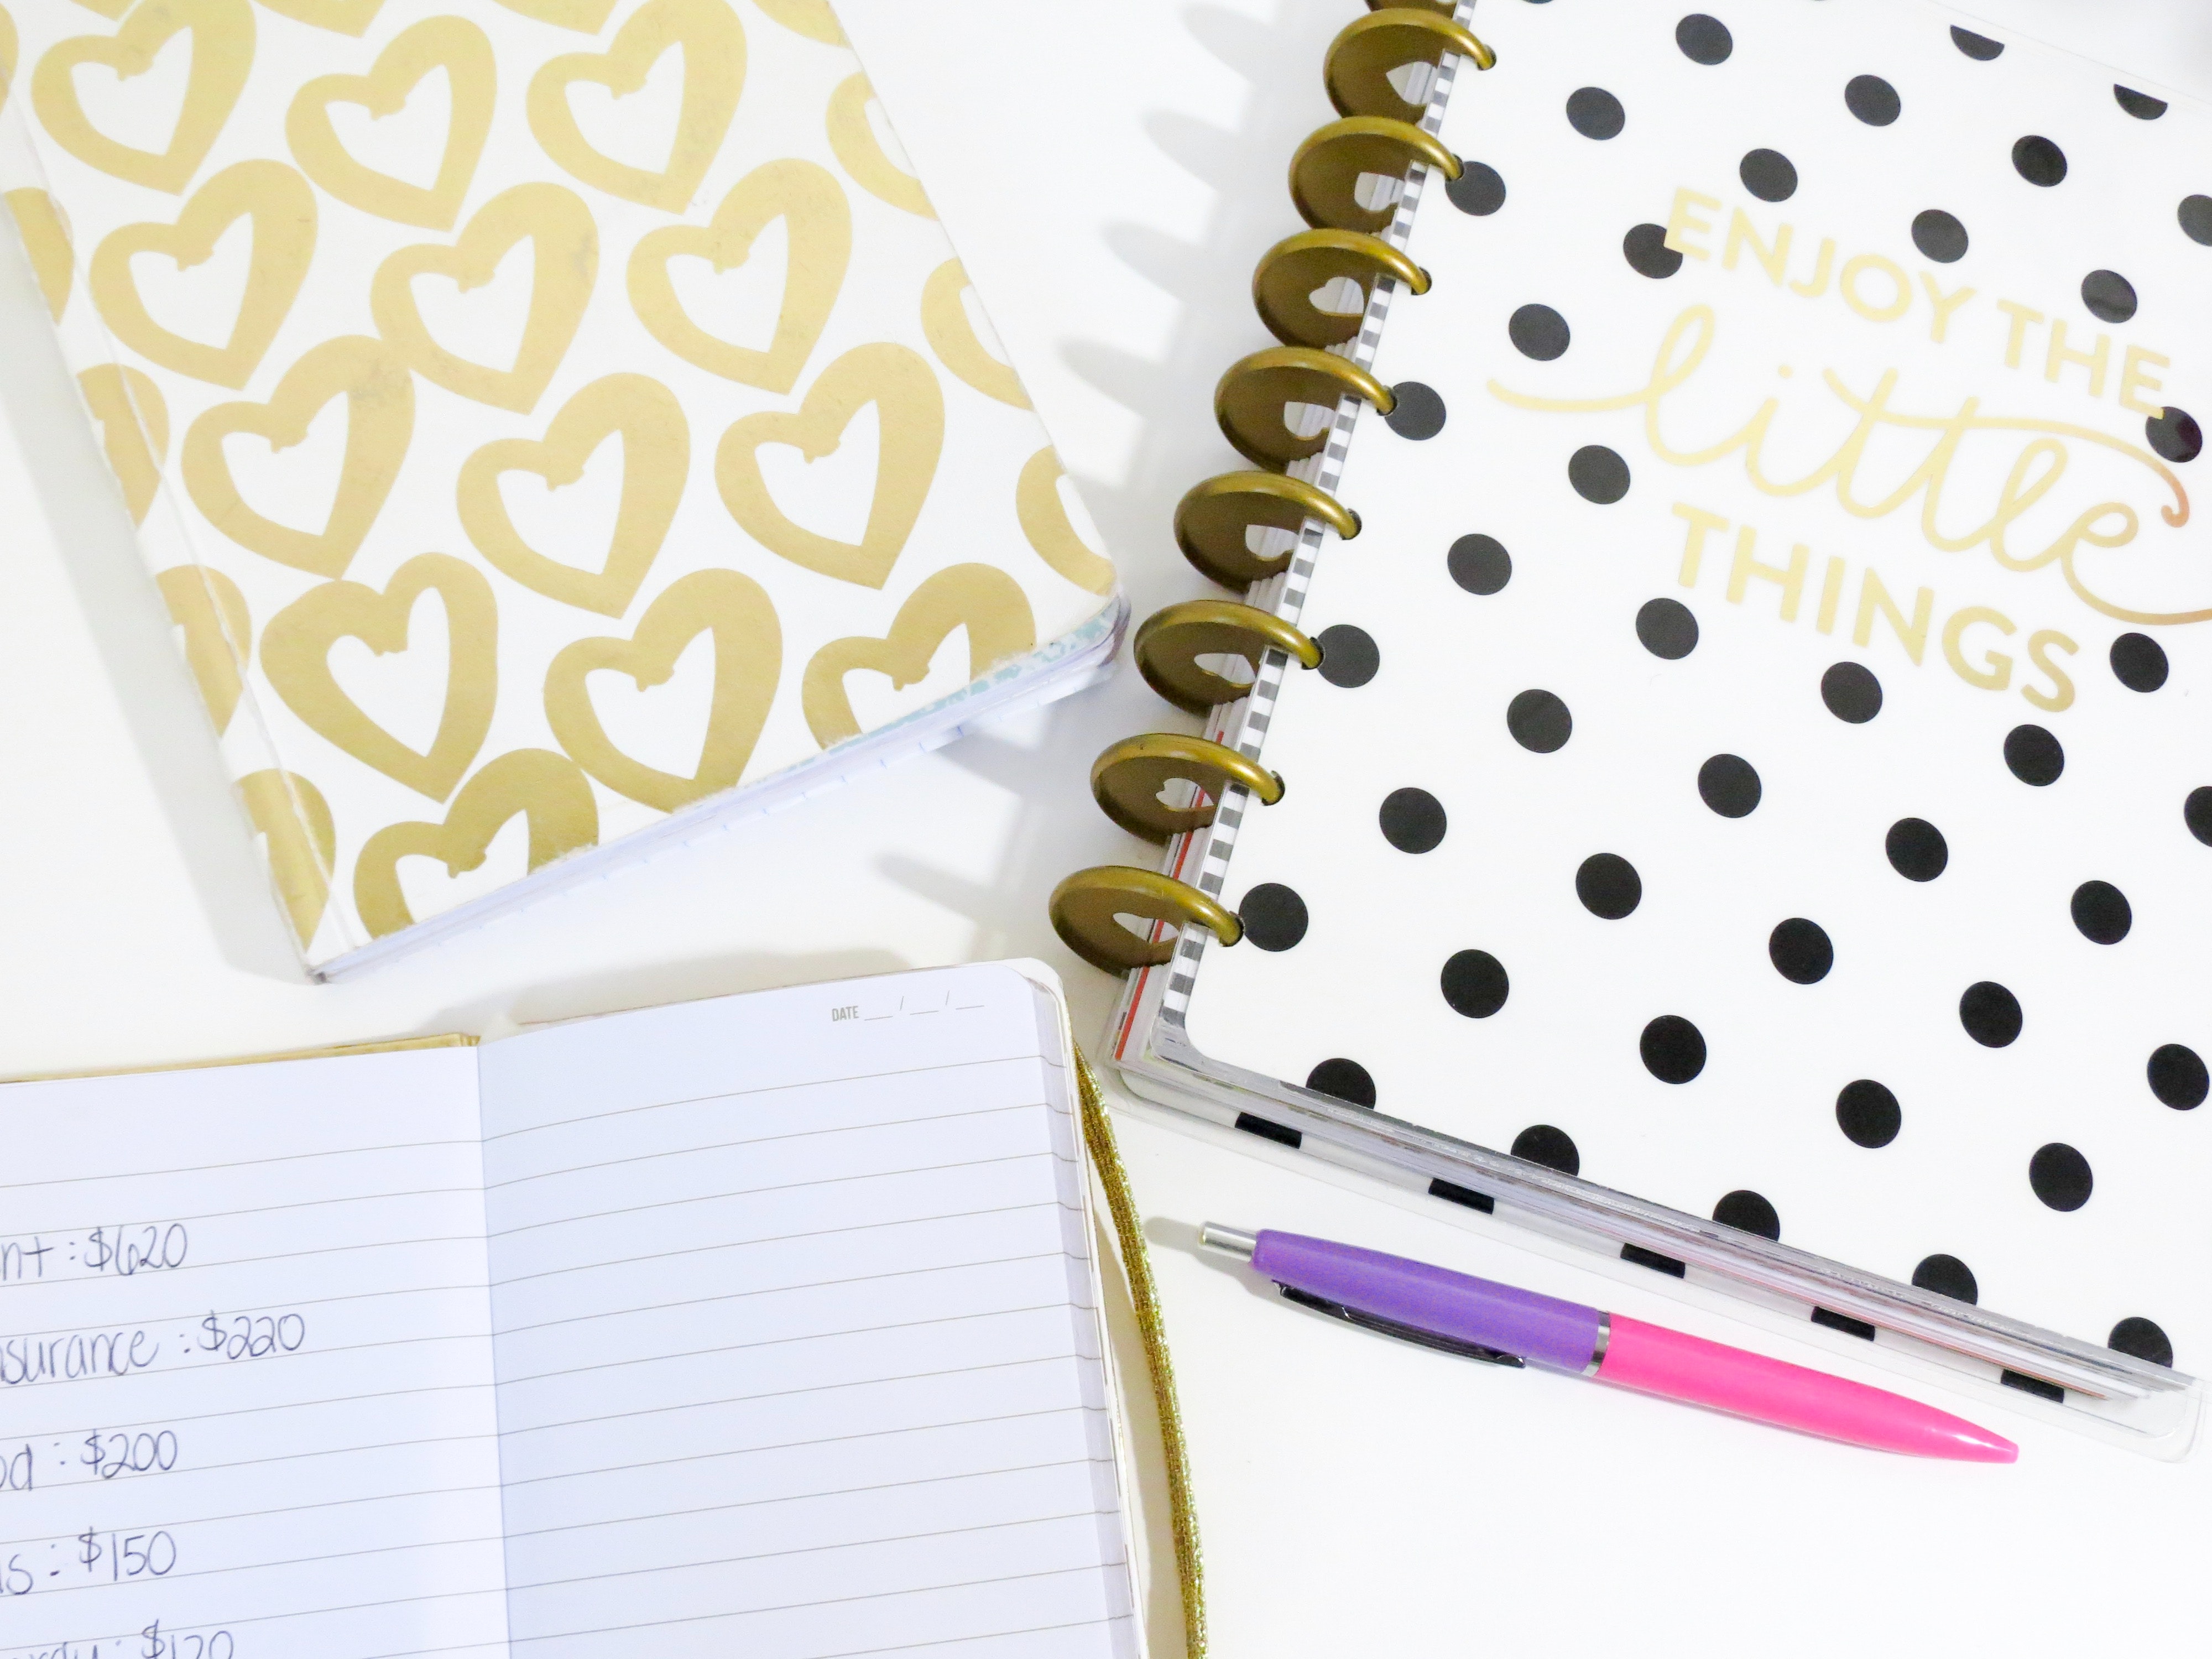 ENJOY THE
little
THINGS
DATE __ / __ / __
nt : $620
nsurance : $220
od : $200
s : $150
: $120